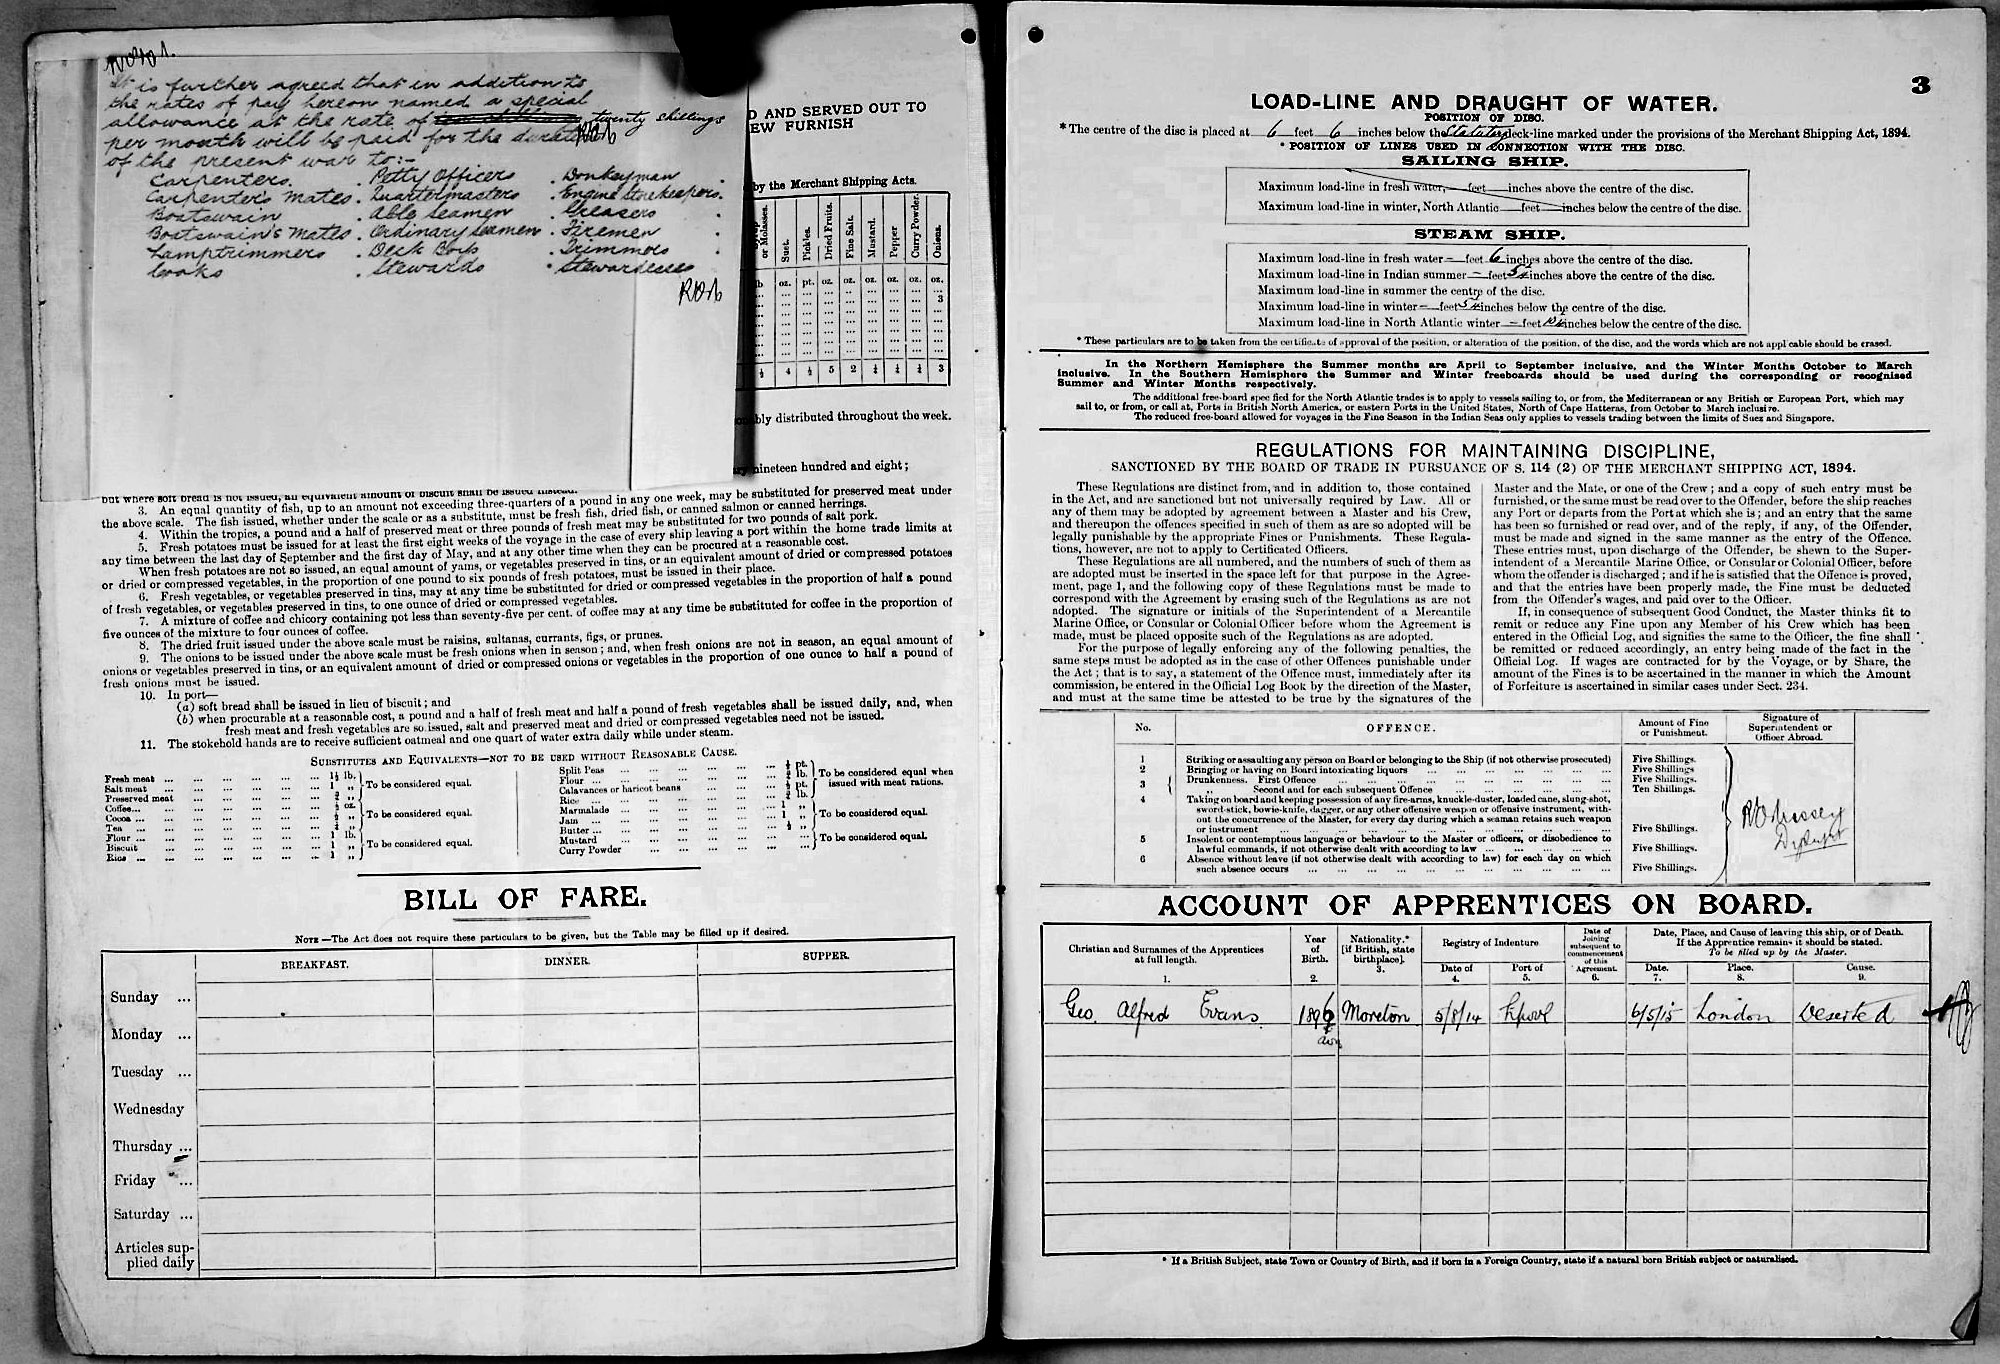 It is further agreed that in addition to
the rates of pay hereon named a special
allowance at the rate of twenty shillings
per month will be paid for the duration
of the present war to:-
Carpenters. . Petty Officers . Donkeyman .
Carpenter's Mates . Quartermasters . Engine Storekeepers.
Boatswain . Able Seamen . Greasers .
Boatswain's Mates . Ordinary Seamen . Firemen .
Lamptrimmers . Deck Boys . Trimmers .
Cooks . Stewards . Stewardesses
D AND SERVED OUT TO
EW FURNISH
by the Merchant Shipping Acts.
or Molasses. Suet. Pickles. Dried Fruits. Fine Salt. Mustard. Pepper Curry Powder. Onions.
lb oz. pt. oz. oz. oz. oz. oz. oz.
3
½ 4 ½ 5 2 ¼ ¼ ¼ 3
bly distributed throughout the week.
nineteen hundred and eight;
but where soft bread is not issued, an equivalent amount of biscuit shall be issued instead.
3. An equal quantity of fish, up to an amount not exceeding three-quarters of a pound in any one week, may be substituted for preserved meat under
the above scale. The fish issued, whether under the scale or as a substitute, must be fresh fish, dried fish, or canned salmon or canned herrings.
4. Within the tropics, a pound and a half of preserved meat or three pounds of fresh meat may be substituted for two pounds of salt pork.
5. Fresh potatoes must be issued for at least the first eight weeks of the voyage in the case of every ship leaving a port within the home trade limits at
any time between the last day of September and the first day of May, and at any other time when they can be procured at a reasonable cost.
When fresh potatoes are not so issued, an equal amount of yams, or vegetables preserved in tins, or an equivalent amount of dried or compressed potatoes
or dried or compressed vegetables, in the proportion of one pound to six pounds of fresh potatoes, must be issued in their place.
6. Fresh vegetables, or vegetables preserved in tins, may at any time be substituted for dried or compressed vegetables in the proportion of half a pound
of fresh vegetables, or vegetables preserved in tins, to one ounce of dried or compressed vegetables.
7. A mixture of coffee and chicory containing not less than seventy-five per cent. of coffee may at any time be substituted for coffee in the proportion of
five ounces of the mixture to four ounces of coffee.
8. The dried fruit issued under the above scale must be raisins, sultanas, currants, figs, or prunes.
9. The onions to be issued under the above scale must be fresh onions when in season; and, when fresh onions are not in season, an equal amount of
onions or vegetables preserved in tins, or an equivalent amount of dried or compressed onions or vegetables in the proportion of one ounce to half a pound of
fresh onions must be issued.
10. In port—
(a) soft bread shall be issued in lieu of biscuit; and
(b) when procurable at a reasonable cost, a pound and a half of fresh meat and half a pound of fresh vegetables shall be issued daily, and, when
fresh meat and fresh vegetables are so issued, salt and preserved meat and dried or compressed vegetables need not be issued.
11. The stokehold hands are to receive sufficient oatmeal and one quart of water extra daily while under steam.
SUBSTITUTES AND EQUIVALENTS—NOT TO BE USED WITHOUT REASONABLE CAUSE.
Fresh meat ... 1½ lb.
Salt meat ... 1 „ To be considered equal.
Preserved meat
Coffee...
Cocoa ... To be considered equal.
Tea ...
Flour ... 1 lb.
Biscuit ... 1 „ To be considered equal.
Rice ... 1 „
Split Peas ... pt.
Flour ... lb. To be considered equal when
Calavances or haricot beans ... pt. issued with meat rations.
Rice ... lb.
Marmalade ... 1 „
Jam ... 1 „ To be considered equal.
Butter ... ½ „
Mustard ... To be considered equal.
Curry Powder ...
BILL OF FARE.
NOTE—The Act does not require these particulars to be given, but the Table may be filled up if desired.
BREAKFAST. DINNER. SUPPER.
Sunday ...
Monday ...
Tuesday ...
Wednesday
Thursday ...
Friday ...
Saturday ...
Articles sup-
plied daily
3
LOAD-LINE AND DRAUGHT OF WATER.
POSITION OF DISC.
* The centre of the disc is placed at 6 feet 6 inches below the Statutory deck-line marked under the provisions of the Merchant Shipping Act, 1894.
* POSITION OF LINES USED IN CONNECTION WITH THE DISC.
SAILING SHIP.
Maximum load-line in fresh water, feet inches above the centre of the disc.
Maximum load-line in winter, North Atlantic feet inches below the centre of the disc.
STEAM SHIP.
Maximum load-line in fresh water — feet 6 inches above the centre of the disc.
Maximum load-line in Indian summer — feet inches above the centre of the disc.
Maximum load-line in summer the centre of the disc.
Maximum load-line in winter — feet inches below the centre of the disc.
Maximum load-line in North Atlantic winter — feet inches below the centre of the disc.
* These particulars are to be taken from the certificate of approval of the position, or alteration of the position, of the disc, and the words which are not applicable should be erased.
In the Northern Hemisphere the Summer months are April to September inclusive, and the Winter Months October to March
inclusive. In the Southern Hemisphere the Summer and Winter freeboards should be used during the corresponding or recognised
Summer and Winter Months respectively.
The additional free-board specified for the North Atlantic trades is to apply to vessels sailing to, or from, the Mediterranean or any British or European Port, which may
sail to, or from, or call at, Ports in British North America, or eastern Ports in the United States, North of Cape Hatteras, from October to March inclusive.
The reduced free-board allowed for voyages in the Fine Season in the Indian Seas only applies to vessels trading between the limits of Suez and Singapore.
REGULATIONS FOR MAINTAINING DISCIPLINE,
SANCTIONED BY THE BOARD OF TRADE IN PURSUANCE OF S. 114 (2) OF THE MERCHANT SHIPPING ACT, 1894.
These Regulations are distinct from, and in addition to, those contained
in the Act, and are sanctioned but not universally required by Law. All or
any of them may be adopted by agreement between a Master and his Crew,
and thereupon the offences specified in such of them as are so adopted will be
legally punishable by the appropriate Fines or Punishments. These Regula-
tions, however, are not to apply to Certificated Officers.
These Regulations are all numbered, and the numbers of such of them as
are adopted must be inserted in the space left for that purpose in the Agree-
ment, page 1, and the following copy of these Regulations must be made to
correspond with the Agreement by erasing such of the Regulations as are not
adopted. The signature or initials of the Superintendent of a Mercantile
Marine Office, or Consular or Colonial Officer before whom the Agreement is
made, must be placed opposite such of the Regulations as are adopted.
For the purpose of legally enforcing any of the following penalties, the
same steps must be adopted as in the case of other Offences punishable under
the Act; that is to say, a statement of the Offence must, immediately after its
commission, be entered in the Official Log Book by the direction of the Master,
and must at the same time be attested to be true by the signatures of the
Master and the Mate, or one of the Crew; and a copy of such entry must be
furnished, or the same must be read over to the Offender, before the ship reaches
any Port or departs from the Port at which she is; and an entry that the same
has been so furnished or read over, and of the reply, if any, of the Offender,
must be made and signed in the same manner as the entry of the Offence.
These entries must, upon discharge of the Offender, be shewn to the Super-
intendent of a Mercantile Marine Office, or Consular or Colonial Officer, before
whom the offender is discharged; and if he is satisfied that the Offence is proved,
and that the entries have been properly made, the Fine must be deducted
from the Offender's wages, and paid over to the Officer.
If, in consequence of subsequent Good Conduct, the Master thinks fit to
remit or reduce any Fine upon any Member of his Crew which has been
entered in the Official Log, and signifies the same to the Officer, the fine shall
be remitted or reduced accordingly, an entry being made of the fact in the
Official Log. If wages are contracted for by the Voyage, or by Share, the
amount of the Fines is to be ascertained in the manner in which the Amount
of Forfeiture is ascertained in similar cases under Sect. 234.
No. OFFENCE. Amount of Fine or Punishment. Signature of Superintendent or Officer Abroad.
1 Striking or assaulting any person on Board or belonging to the Ship (if not otherwise prosecuted) Five Shillings.
2 Bringing or having on Board intoxicating liquors ... Five Shillings.
3 Drunkenness. First Offence ... Five Shillings.
„ Second and for each subsequent Offence ... Ten Shillings.
4 Taking on board and keeping possession of any fire-arms, knuckle-duster, loaded cane, slung-shot,
sword-stick, bowie-knife, dagger, or any other offensive weapon or offensive instrument, with-
out the concurrence of the Master, for every day during which a seaman retains such weapon
or instrument ... Five Shillings.
5 Insolent or contemptuous language or behaviour to the Master or officers, or disobedience to
lawful commands, if not otherwise dealt with according to law ... Five Shillings.
6 Absence without leave (if not otherwise dealt with according to law) for each day on which
such absence occurs ... Five Shillings.
ACCOUNT OF APPRENTICES ON BOARD.
Christian and Surnames of the Apprentices at full length. 1.
Year of Birth. 2.
Nationality.* [if British, state birthplace]. 3.
Registry of Indenture
Date of 4. Port of 5.
Date of Joining subsequent to commencement of this Agreement. 6.
Date, Place, and Cause of leaving this ship, or of Death.
If the Apprentice remains it should be stated.
To be filled up by the Master.
Date. 7. Place. 8. Cause. 9.
Geo. Alfred Evans 1896 Moreton 5/8/14 L'pool 6/5/15 London Deserted
* If a British Subject, state Town or Country of Birth, and if born in a Foreign Country, state if a natural born British subject or naturalised.